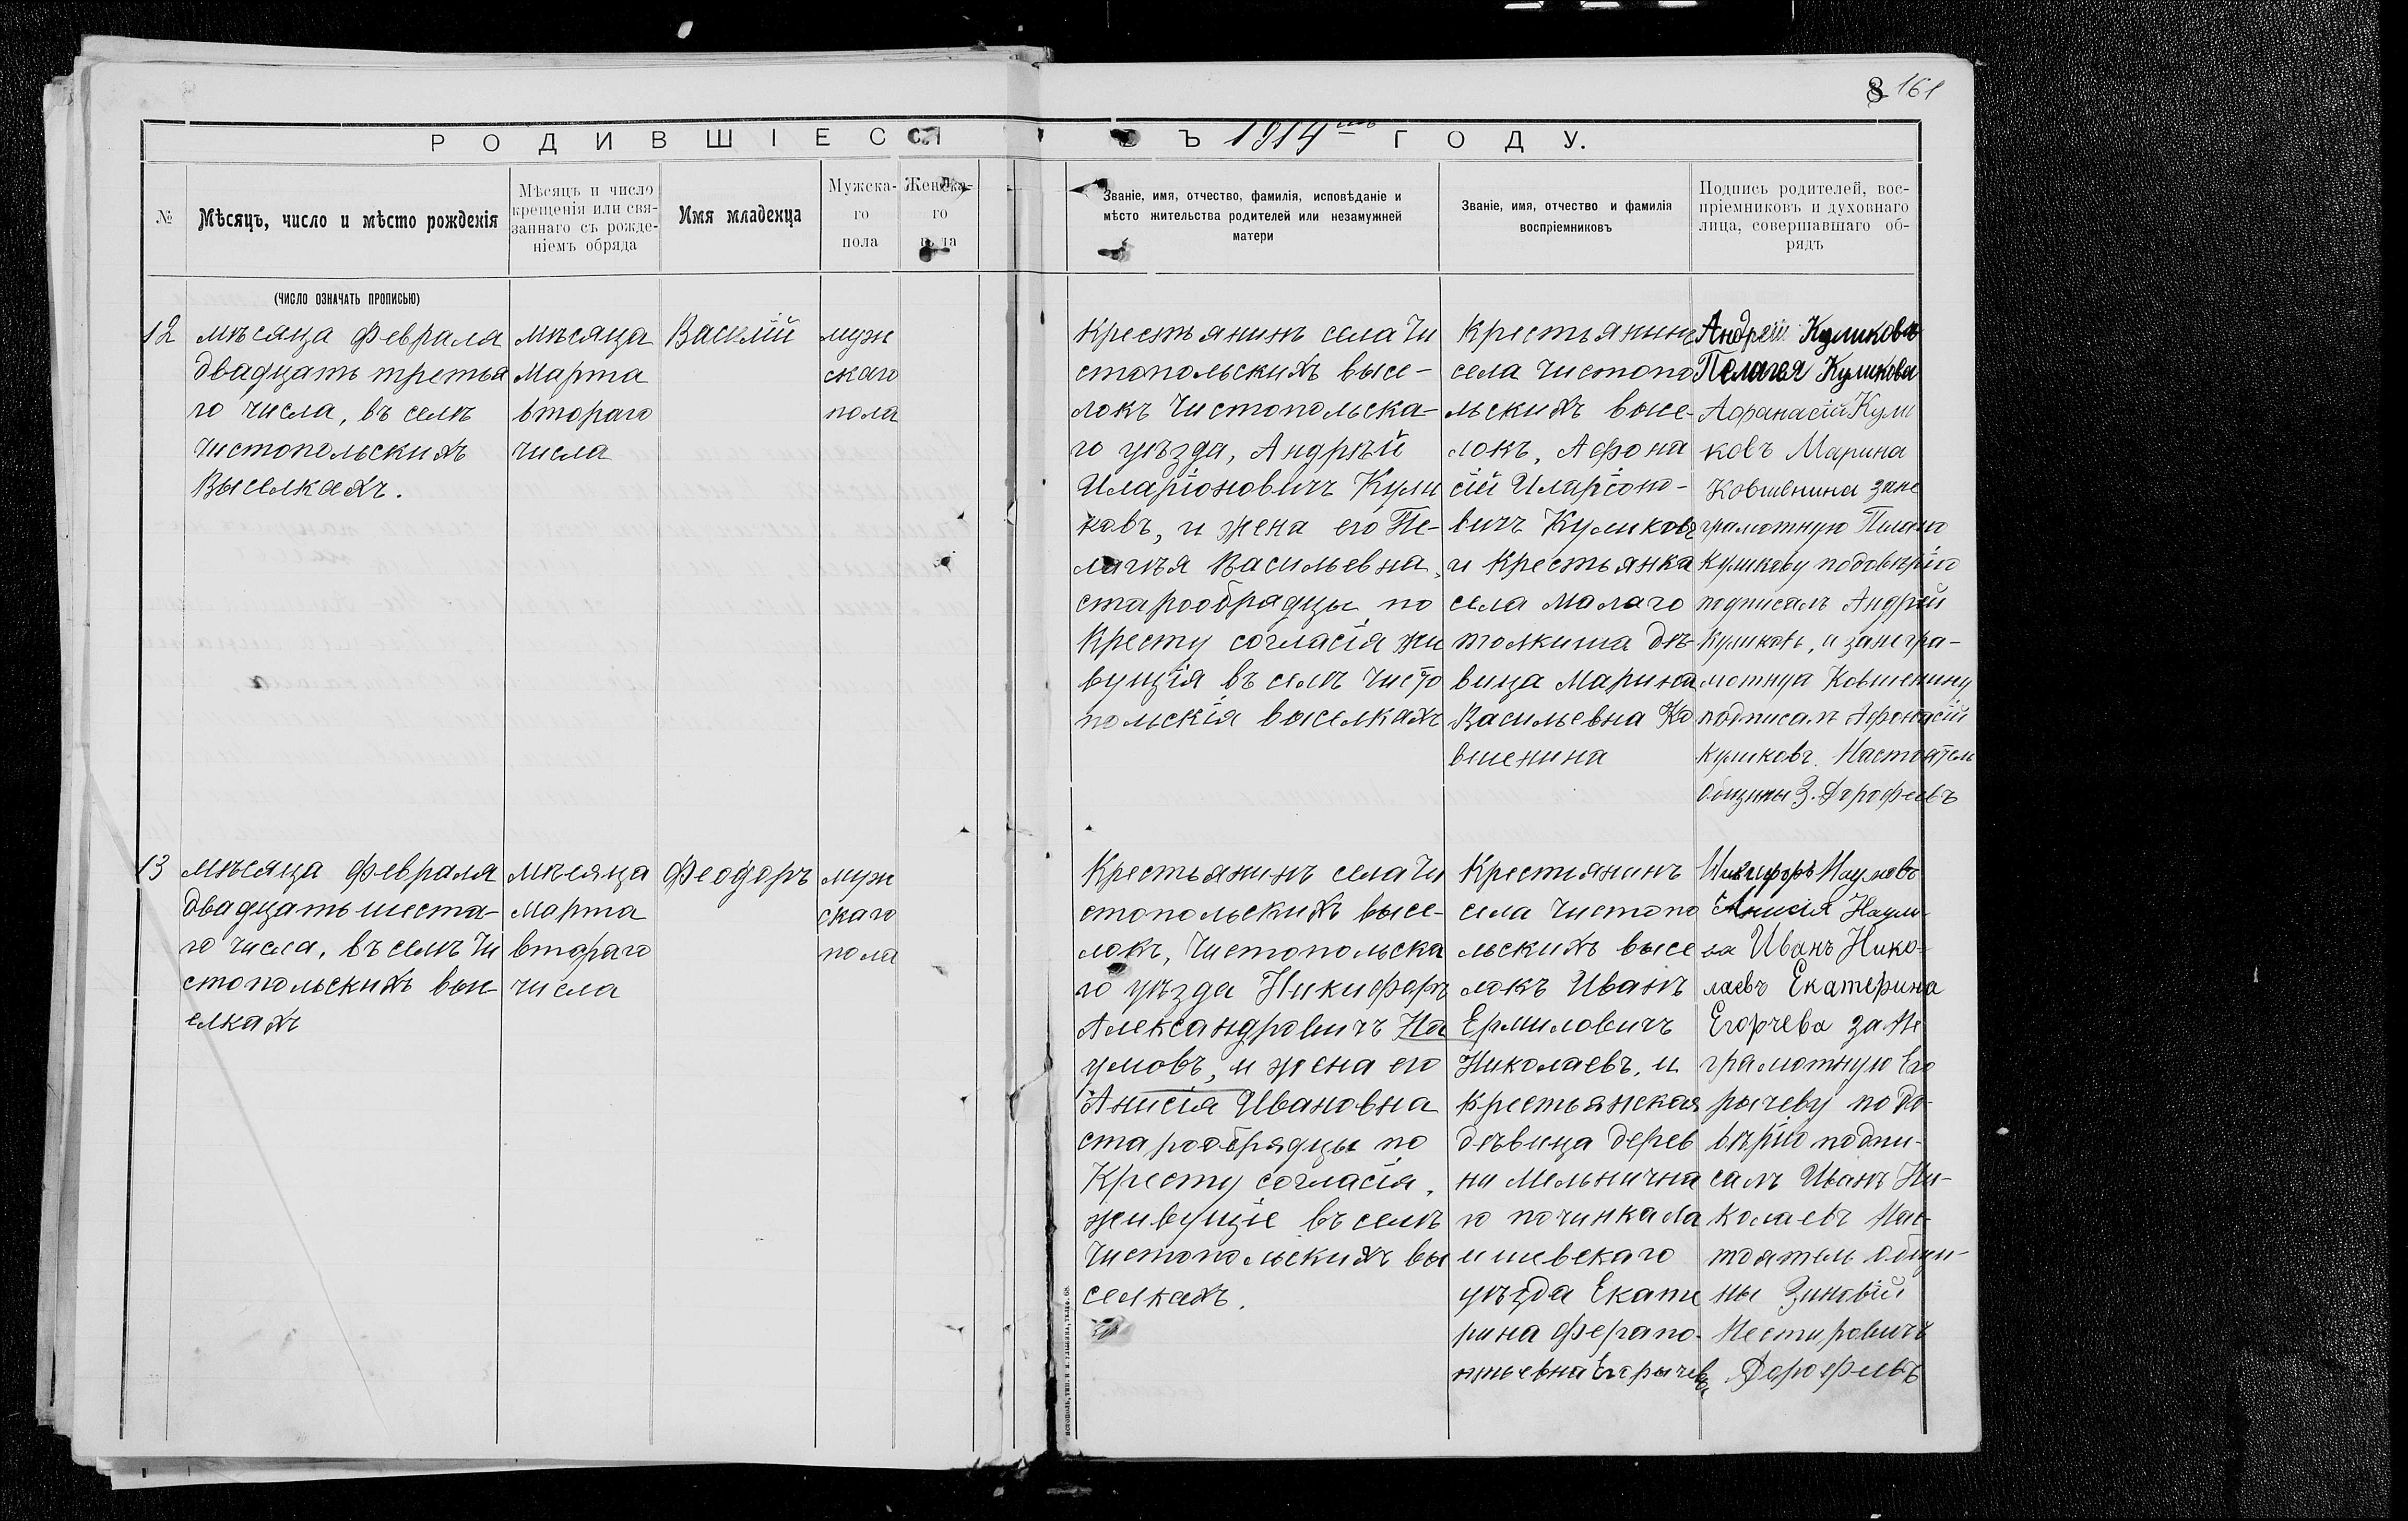 8 161
РОДИВШІЕСЯ ВЪ 1914 ГОДУ.
№
Мѣсяцъ, число и мѣсто рожденія
Мѣсяцъ и число
крещенія или свя-
заннаго съ рожде-
ніемъ обряда
Имя младенца
Мужска-
го
пола
Женска-
го
пола
Званіе, имя, отчество, фамилія, исповѣданіе и
мѣсто жительства родителей или незамужней
матери
Званіе, имя, отчество и фамилія
воспріемниковъ
Подпись родителей, вос-
пріемниковъ и духовнаго
лица, совершавшаго об-
рядъ
(ЧИСЛО ОЗНАЧАТЬ ПРОПИСЬЮ)
12
мѣсяца февраля
двадцать третья
го числа, въ селѣ
Чистопольскихъ
Выселкахъ.
мѣсяца
Марта
втораго
числа
Василій
муж
скаго
пола
Крестьянинъ села Чи
стопольскихъ высе-
локъ Чистопольска-
го уѣзда, Андрѣй
Иларіоновичъ Кули
ковъ, и жена его Пе-
лагѣя Васильевна,
старообрядцы по
Кресту согласія жи
вущія въ селѣ Чисто
польскія выселкахъ
Крестьянинъ
села Чистопо
льскихъ высе-
локъ, Афона
сій Иларіоно-
вичъ Куликовъ
и Крестьянка
села Малаго
толкиша дѣ-
вица Марина
Васильевна Ко
вшенина
Андрей Куликовъ
Пелагея Куликова
Афанасій Кули
ковъ Марина
Ковшенина зане
грамотную Пелагю
Куликову подовѣрію
подписалъ Андрей
Куликовъ, и занегра-
мотную Ковшенину
подписалъ Афонасій
Куликовъ. Настоятель
общины З. Дорофеевъ
13
мѣсяца февраля
двадцать шеста-
го числа, въ селѣ Чи
стопольскихъ выс
елкахъ
мѣсяца
Марта
втораго
числа
Феодоръ
муж
скаго
пола
Крестьянинъ села Чи
стопольскихъ высе-
локъ, Чистопольска
го уѣзда Никифоръ
Александровичъ На
умовъ, и жена его
Анисія Ивановна
старообрядцы по
Кресту согласія,
живущіе въ селѣ
Чистопольскихъ вы
селкахъ.
Крестьянинъ
села Чистопо
льскихъ высе
локъ Иванъ
Ермиловичъ
Николаевъ, и
крестьянская
дѣвица дерев
ни Мельнична
го починка Ла
ишевскаго
уѣзда Екате
рина Ферапо-
нтьевна Егорычева
Никифоръ Наумовъ
Анисія Наумо-
ва Иванъ Нико-
лаевъ Екатерина
Егорчева за не
грамотную Его
рычеву по до-
вѣрію подпи-
салъ Иванъ Ни-
колаевъ Нас-
тоятель общи-
ны Зиновій
Нестировичъ
Дорофеевъ